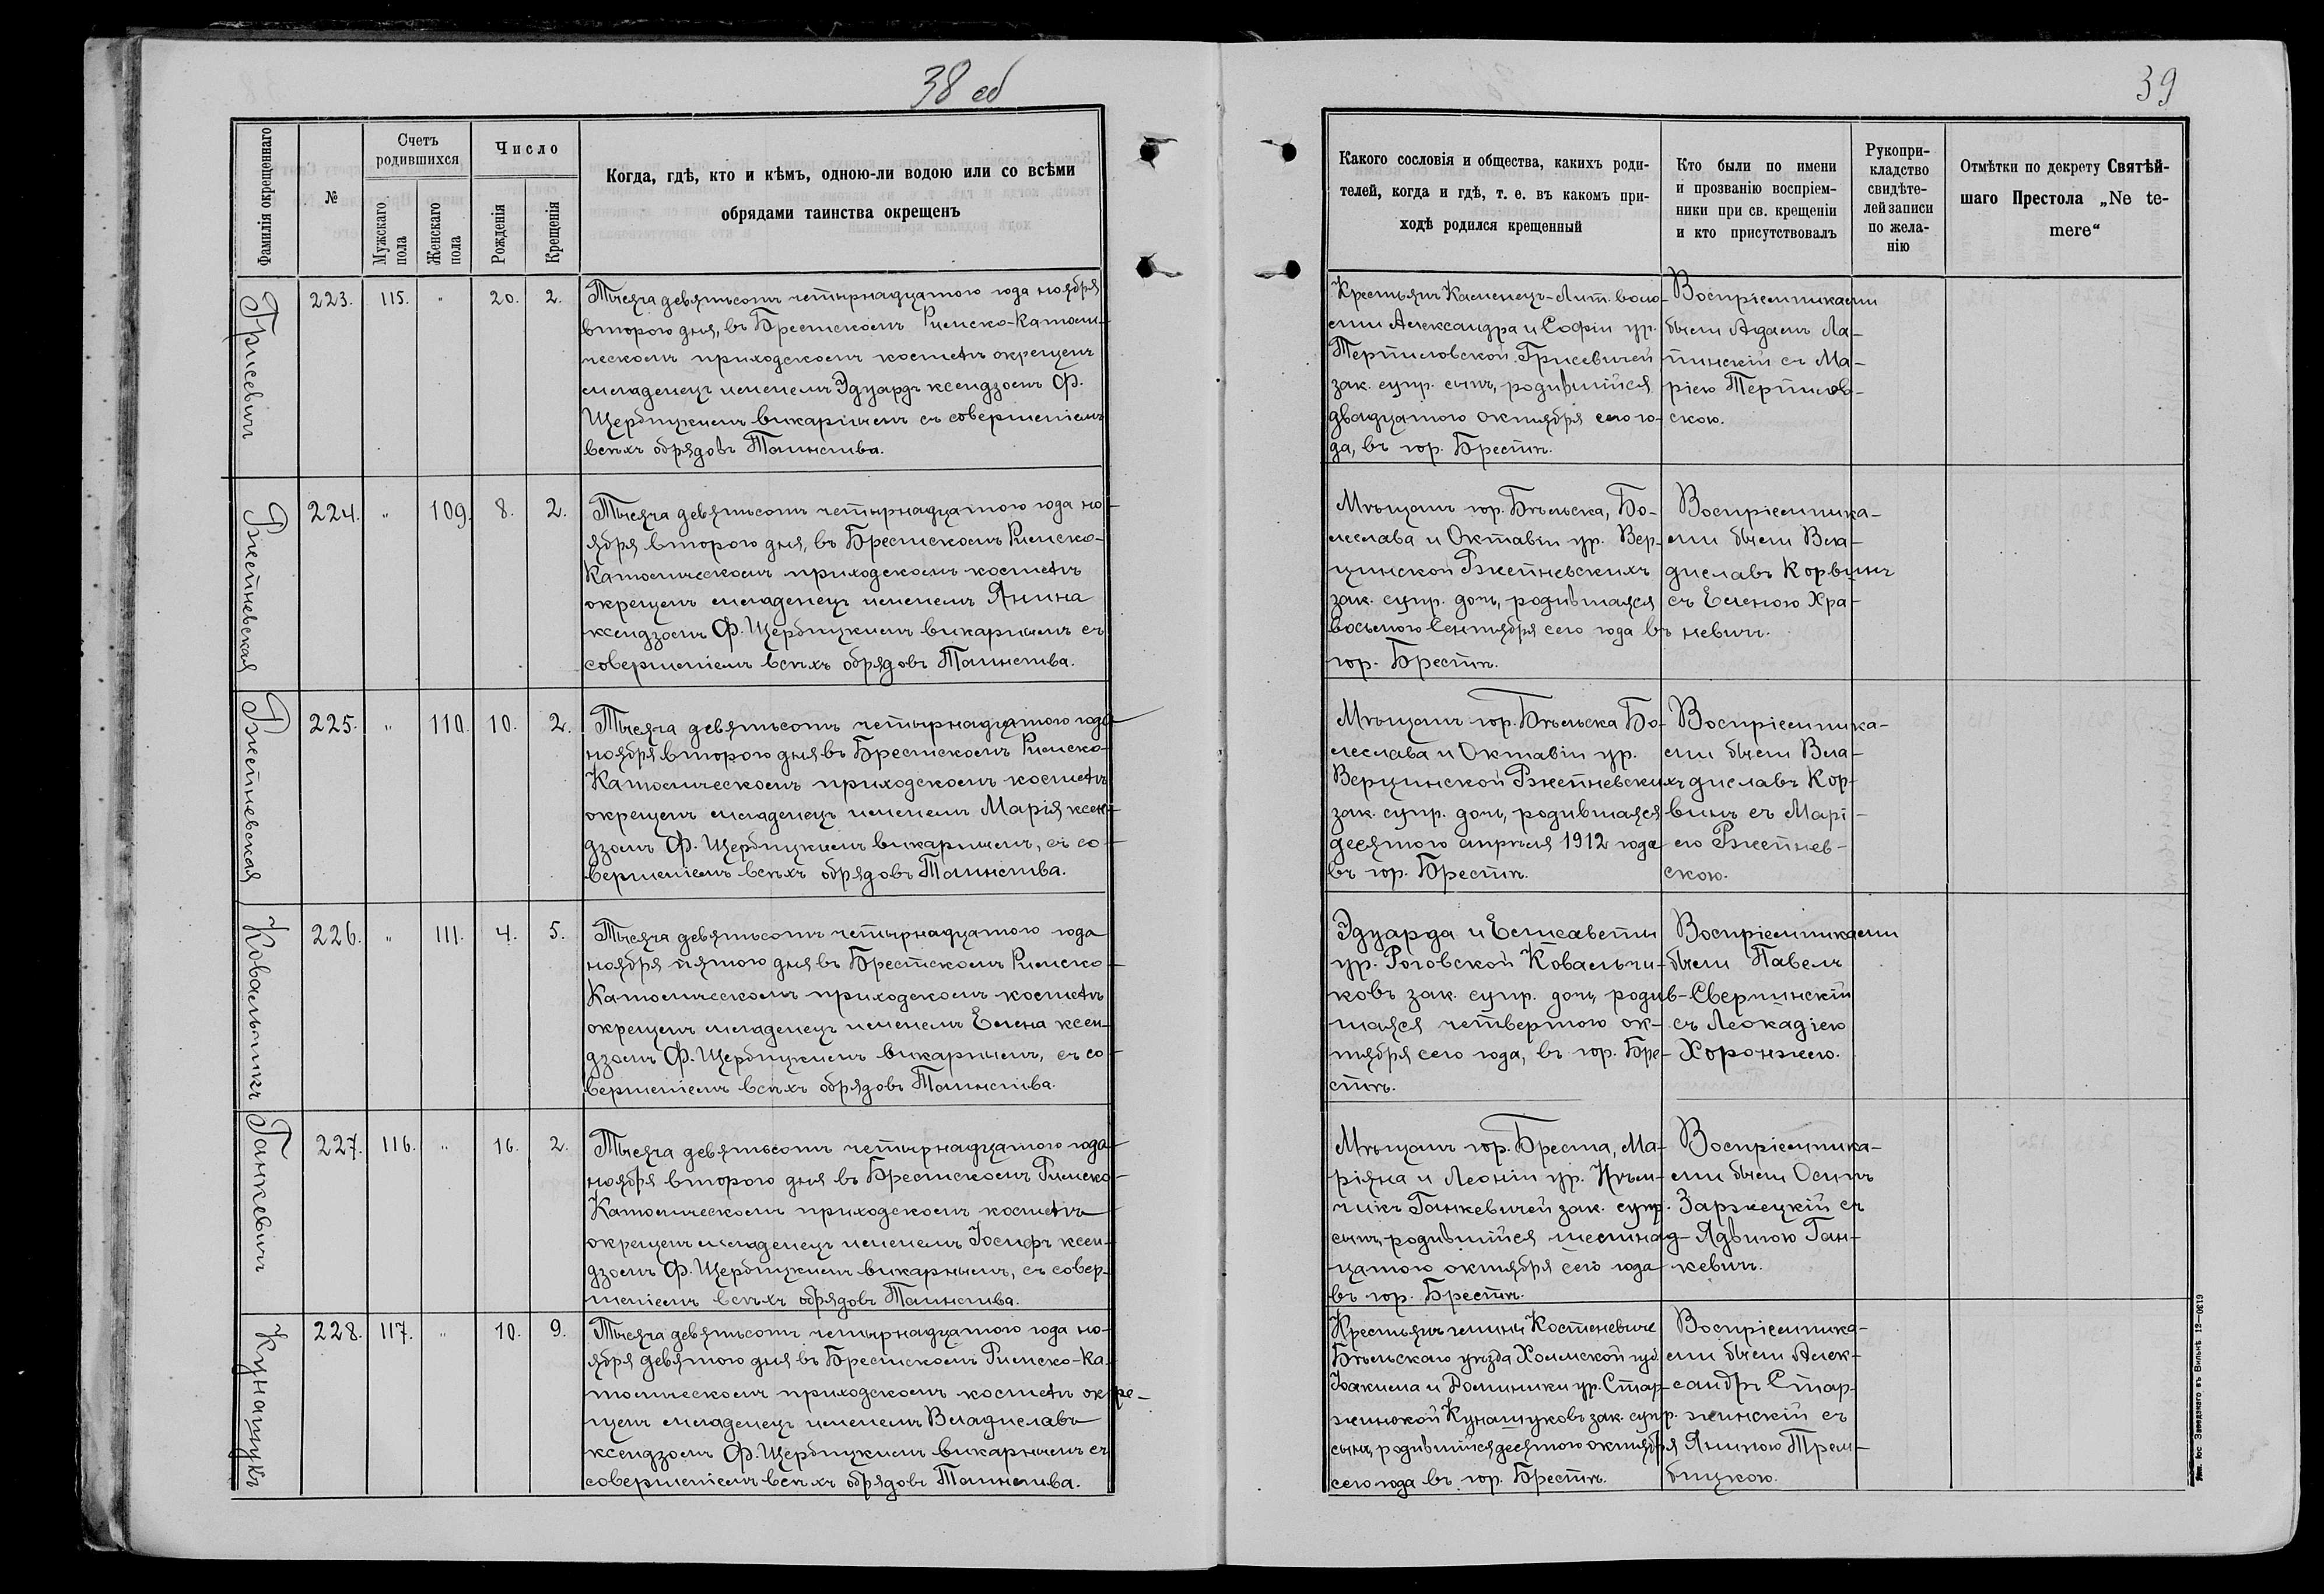 38 об
Фамилія окрещеннаго
№
Счетъ
родившихся
Мужскаго
пола
Женскаго
пола
Число
Рожденія
Крещенія
Когда, гдѣ, кто и кѣмъ, одною-ли водою или со всѣми
обрядами таинства окрещенъ
Грисевичъ
223. 115. " 20. 2.
Тысяча девятьсотъ четырнадцатого года ноября
второго дня, въ Брестскомъ Римско-Католи-
ческомъ приходскомъ костелѣ окрещенъ
младенецъ именемъ Эдуардъ ксендзомъ Ф.
Щербицкимъ викарнымъ съ совершеніемъ
всѣхъ обрядовъ Таинства.
Ржепневская
224. " 109. 8. 2.
Тысяча девятьсотъ четырнадцатого года но-
ября второго дня, въ Брестскомъ Римско-
Католическомъ приходскомъ костелѣ
окрещенъ младенецъ именемъ Янина
ксендзомъ Ф. Щербицкимъ викарнымъ съ
совершеніемъ всѣхъ обрядовъ Таинства.
Ржепневская
225. " 110. 10. 2.
Тысяча девятьсотъ четырнадцатого года
ноября второго дня въ Брестскомъ Римско-
Католическомъ приходскомъ костелѣ
окрещенъ младенецъ именемъ Марія ксен-
дзомъ Ф. Щербицкимъ викарнымъ, съ со-
вершеніемъ всѣхъ обрядовъ Таинства.
Ковальчикъ
226. " 111. 4. 5.
Тысяча девятьсотъ четырнадцатого года
ноября пятого дня въ Брестскомъ Римско-
Католическомъ приходскомъ костелѣ
окрещенъ младенецъ именемъ Елена ксен-
дзомъ Ф. Щербицкимъ викарнымъ, съ со-
вершеніемъ всѣхъ обрядовъ Таинства.
Ганкевичъ
227. 116. " 16. 2.
Тысяча девятьсотъ четырнадцатого года
ноября второго дня въ Брестскомъ Римско-
Католическомъ приходскомъ костелѣ
окрещенъ младенецъ именемъ Іосифъ ксен-
дзомъ Ф. Щербицкимъ викарнымъ, съ совер-
шеніемъ всѣхъ обрядовъ Таинства.
Кунащукъ
228. 117. " 10. 9.
Тысяча девятьсотъ четырнадцатого года но-
ября девятого дня въ Брестскомъ Римско-Ка-
толическомъ приходскомъ костелѣ окре-
щенъ младенецъ именемъ Владиславъ
ксендзомъ Ф. Щербицкимъ викарнымъ съ
совершеніемъ всѣхъ обрядовъ Таинства.
39
Какого сословія и общества, какихъ роди-
телей, когда и гдѣ, т. е. въ какомъ при-
ходѣ родился крещенный
Кто были по имени
и прозванію воспріем-
ники при св. крещеніи
и кто присутствовалъ
Рукопри-
кладство
свидѣте-
лей записи
по жела-
нію
Отмѣтки по декрету Святѣй-
шаго Престола „Ne te-
mere“
Крестьянъ Каменецъ-Лит. воло-
сти Александра и Софіи ур.
Терпиловской Грисевичей
зак. супр. сынъ, родившійся
двадцатого октября сего го-
да, въ гор. Брестѣ.
Воспріемниками
были Адамъ Ла-
пинскій съ Ма-
ріею Терпилов-
скою.
Мѣщанъ гор. Бѣльска, Бо-
леслава и Октавіи ур. Вер-
цинской Ржепневскихъ
зак. супр. дочь, родившаяся
восьмого Сентября сего года въ
гор. Брестѣ.
Воспріемника-
ми были Вла-
диславъ Корвинъ
съ Еленою Хра-
невичъ.
Мѣщанъ гор. Бѣльска Бо-
леслава и Октавіи ур.
Верцинской Ржепневскихъ
зак. супр. дочь, родившаяся
десятого апрѣля 1912 года
въ гор. Брестѣ.
Воспріемника-
ми были Вла-
диславъ Кор-
винъ съ Марі-
ею Ржепнев-
скою.
Эдуарда и Елисаветы
ур. Роговской Ковальчи-
ковъ зак. супр. дочь, родив-
шаяся четвертого ок-
тября сего года, въ гор. Бре-
стѣ.
Воспріемниками
были Павелъ
Сверпинскій
съ Леокадіею
Хоронжею.
Мѣщанъ гор. Бреста, Ма-
ріяна и Леоніи ур. Нѣм-
чикъ Ганкевичей зак. супр.
сынъ, родившійся шестнад-
цатого октября сего года
въ гор. Брестѣ.
Воспріемника-
ми были Осипъ
Заржецкій съ
Ядвигою Ган-
кевичъ.
Крестьянъ гмины Костеневиче
Бѣльскаго уѣзда Холмской губ.
Іоакима и Доминики ур. Стар-
жинской Кунащуковъ зак. супр.
сынъ, родившійся десятого октября
сего года въ гор. Брестѣ.
Воспріемника-
ми были Алек-
сандръ Стар-
жинскій съ
Яниною Трем-
бицкою.
Тип. Іос. Завадзкаго въ Вильнѣ. 12—0619